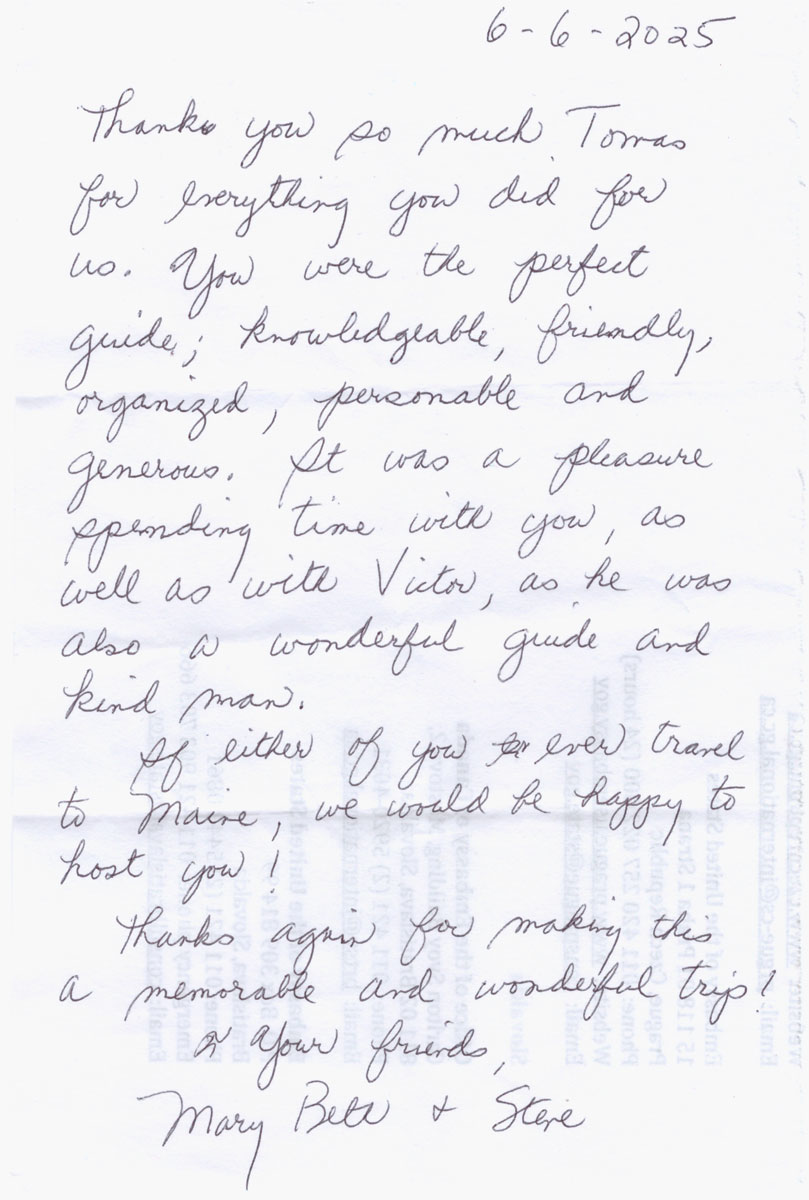 6-6-2025
Thanks you so much Tomas
for everything you did for
us. You were the perfect
guide; knowledgeable, friendly,
organized, personable and
generous. It was a pleasure
spending time with you, as
well as with Victor, as he was
also a wonderful guide and
kind man.
If either of you ever travel
to Maine, we would be happy to
host you!
Thanks again for making this
a memorable and wonderful trip!
Your friends,
Mary Beth + Steve